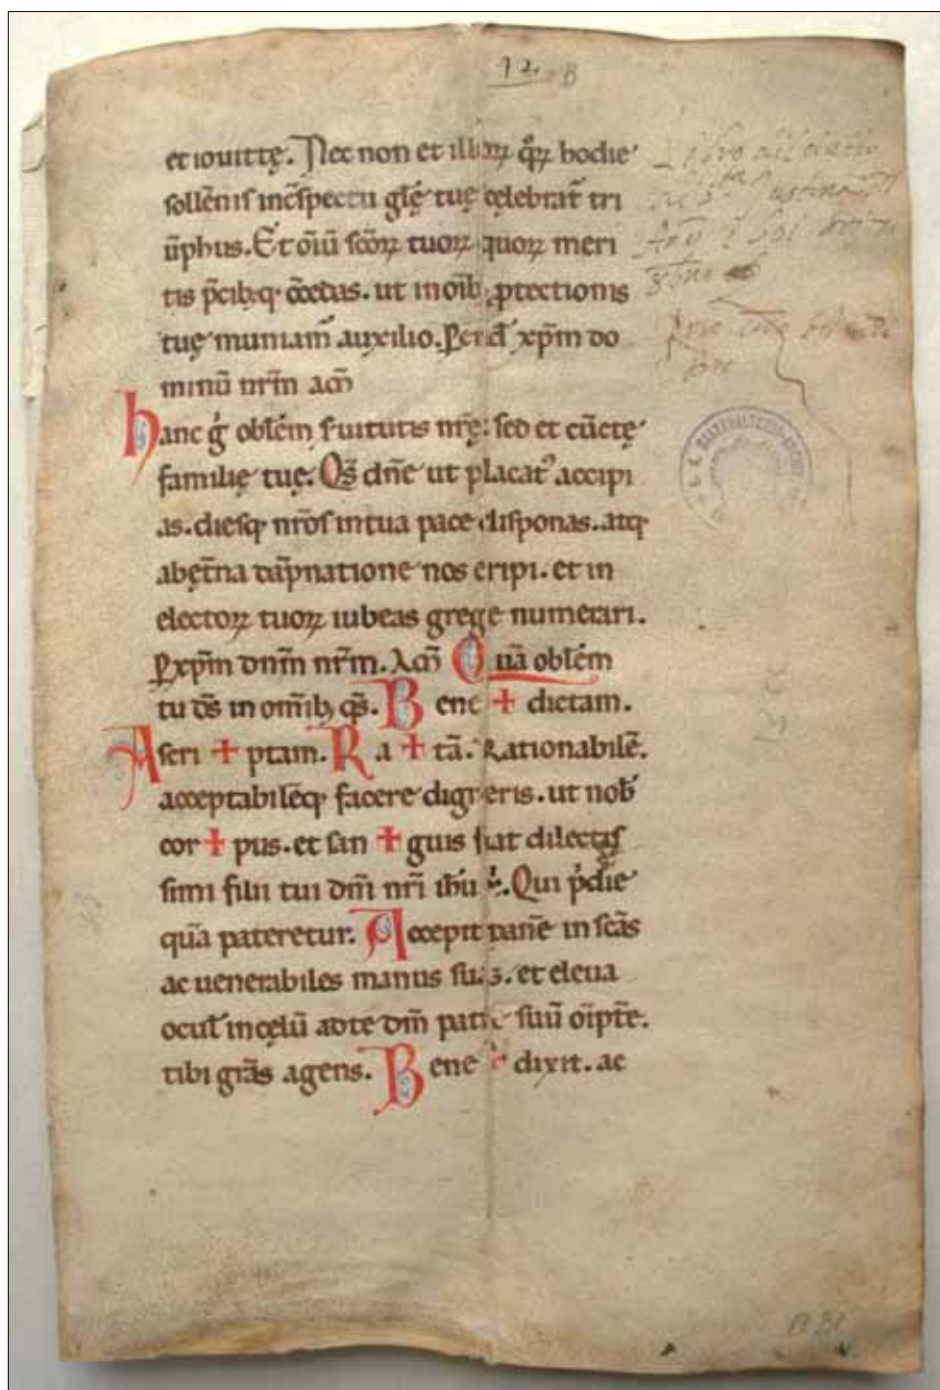 12. B
et iouittę. Nec non et illoꝝ qͦꝝ hodie
sollēnis in cōspectu glę tuę cęlebrat̄ tri
ūphus. Et oīū scōꝝ tuoꝝ quoꝝ meri
tis p̄cibꝫq; cōcedas. ut in oīb; ꝓtectionis
tuę muniam̄ auxilio. Per eūd̄ xp̄m do
minū nr̄m am̄
hanc g̊ oblēm s̄uitutis nr̄ę: sed et cūctę
familię tuę. Qs̄ dn̄e ut placatꝰ accipi
as. diesq; nr̄os in tua pace disponas. atq;
ab ęt̄na dāpnatione nos eripi. et in
electoꝝ tuoꝝ iubeas grege numerari.
P xp̄m dn̄m nr̄m. Am̄ Quā oblēm
tu ds̄ in om̄ib; qs̄. Bene + dictam.
Ascri + ptam. Ra + tā. Rationabilē.
acceptabilēq; facere digneris. ut nob̄
cor + pus. et san + guis fiat dilectis
simi filii tui dn̄i nr̄i ih̄u x̄. Qui p̄die
quā pateretur. Accepit panē in sc̄as
ac uenerabiles manus suas. et eleua
ocul̄ in cęlū ad te dm̄ patrē suū oīpt̄ē.
tibi grās agens. Bene + dixit. ac